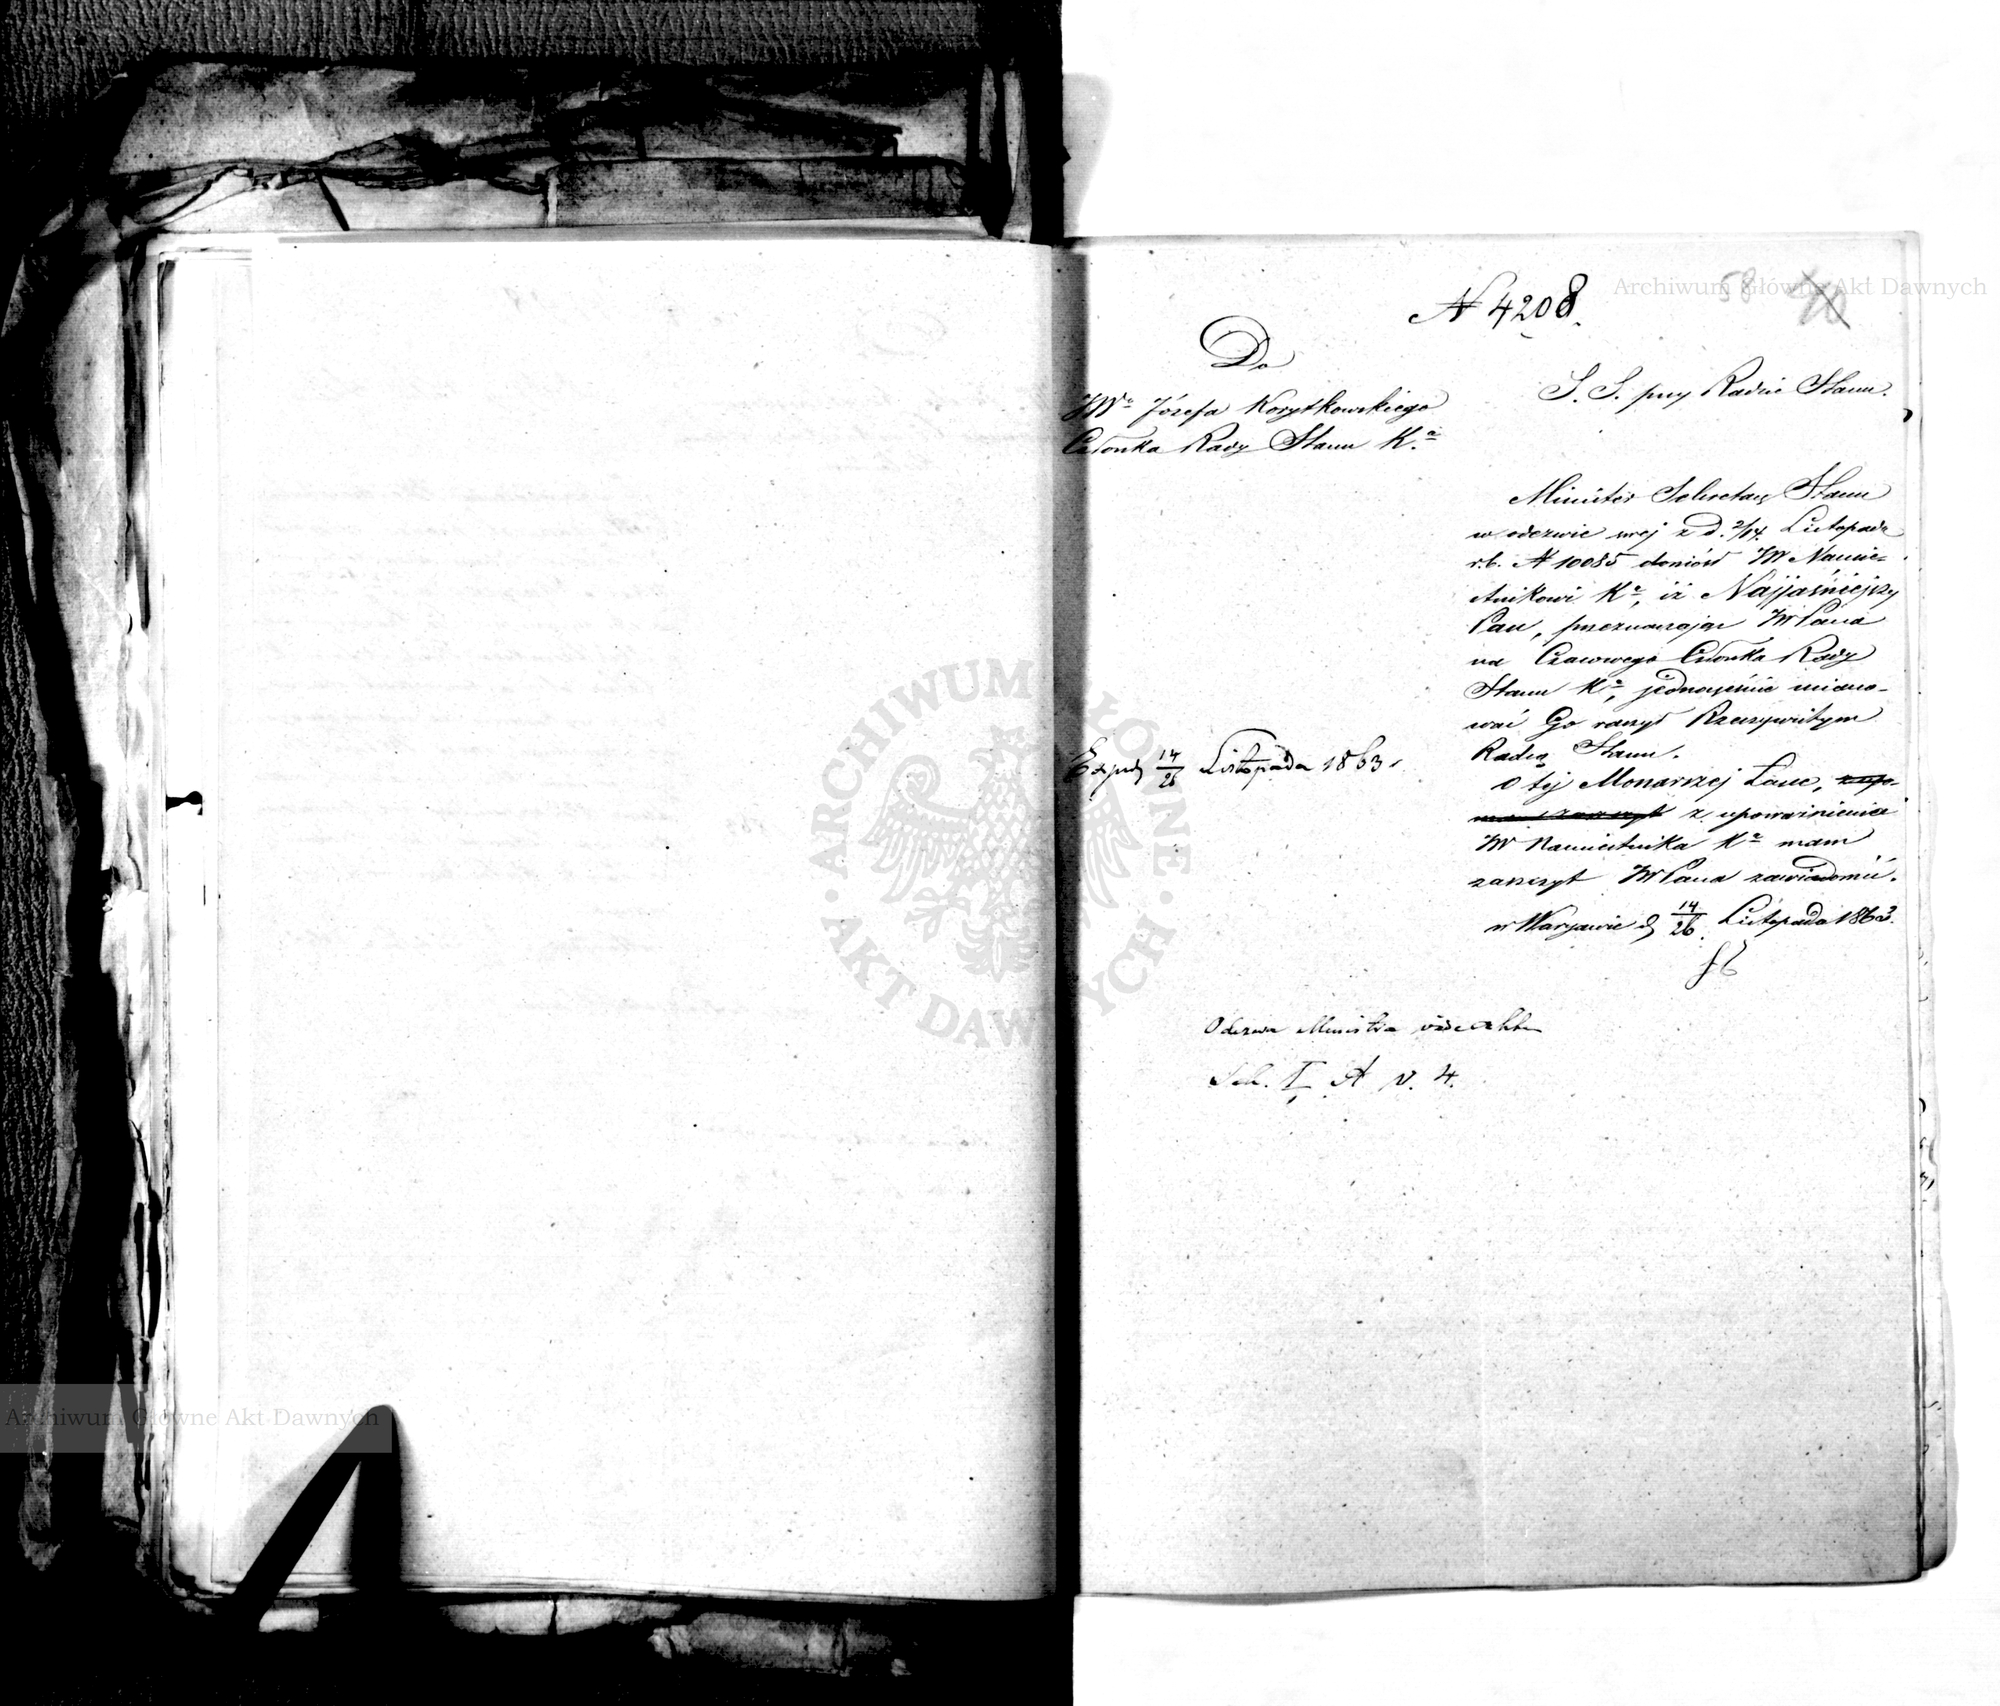 N 4208.
58
Do
JWo Józefa Korytkowskiego
Członka Rady Stanu Ka
S. S. przy Radzie Stanu.
Minister Sekretarz Stanu
w odezwie swej z d. 2/14. Listopada
r.b. N 10085 doniósł JW Namie-
stnikowi Ka, iż Najjaśniejszy
Pan, przeznaczając JWPana
na Czasowego Członka Rady
Stanu Ka, jednocześnie miano-
wać Go raczył Rzeczywistym
Radcą Stanu.
O tej Monarszej Łasce,
z upoważnienia
JW Namiestnika Ka mam
zaszczyt JWPana zawiadomić.
w Warszawie d 14/26. Listopada 1863.
Exped 14/26 Listopada 1863.
Odezwa Ministra w
Sek. I A v. 4.
Archiwum Główne Akt Dawnych
ARCHIWUM GŁÓWNE · AKT DAWNYCH ·
Archiwum Główne Akt Dawnych